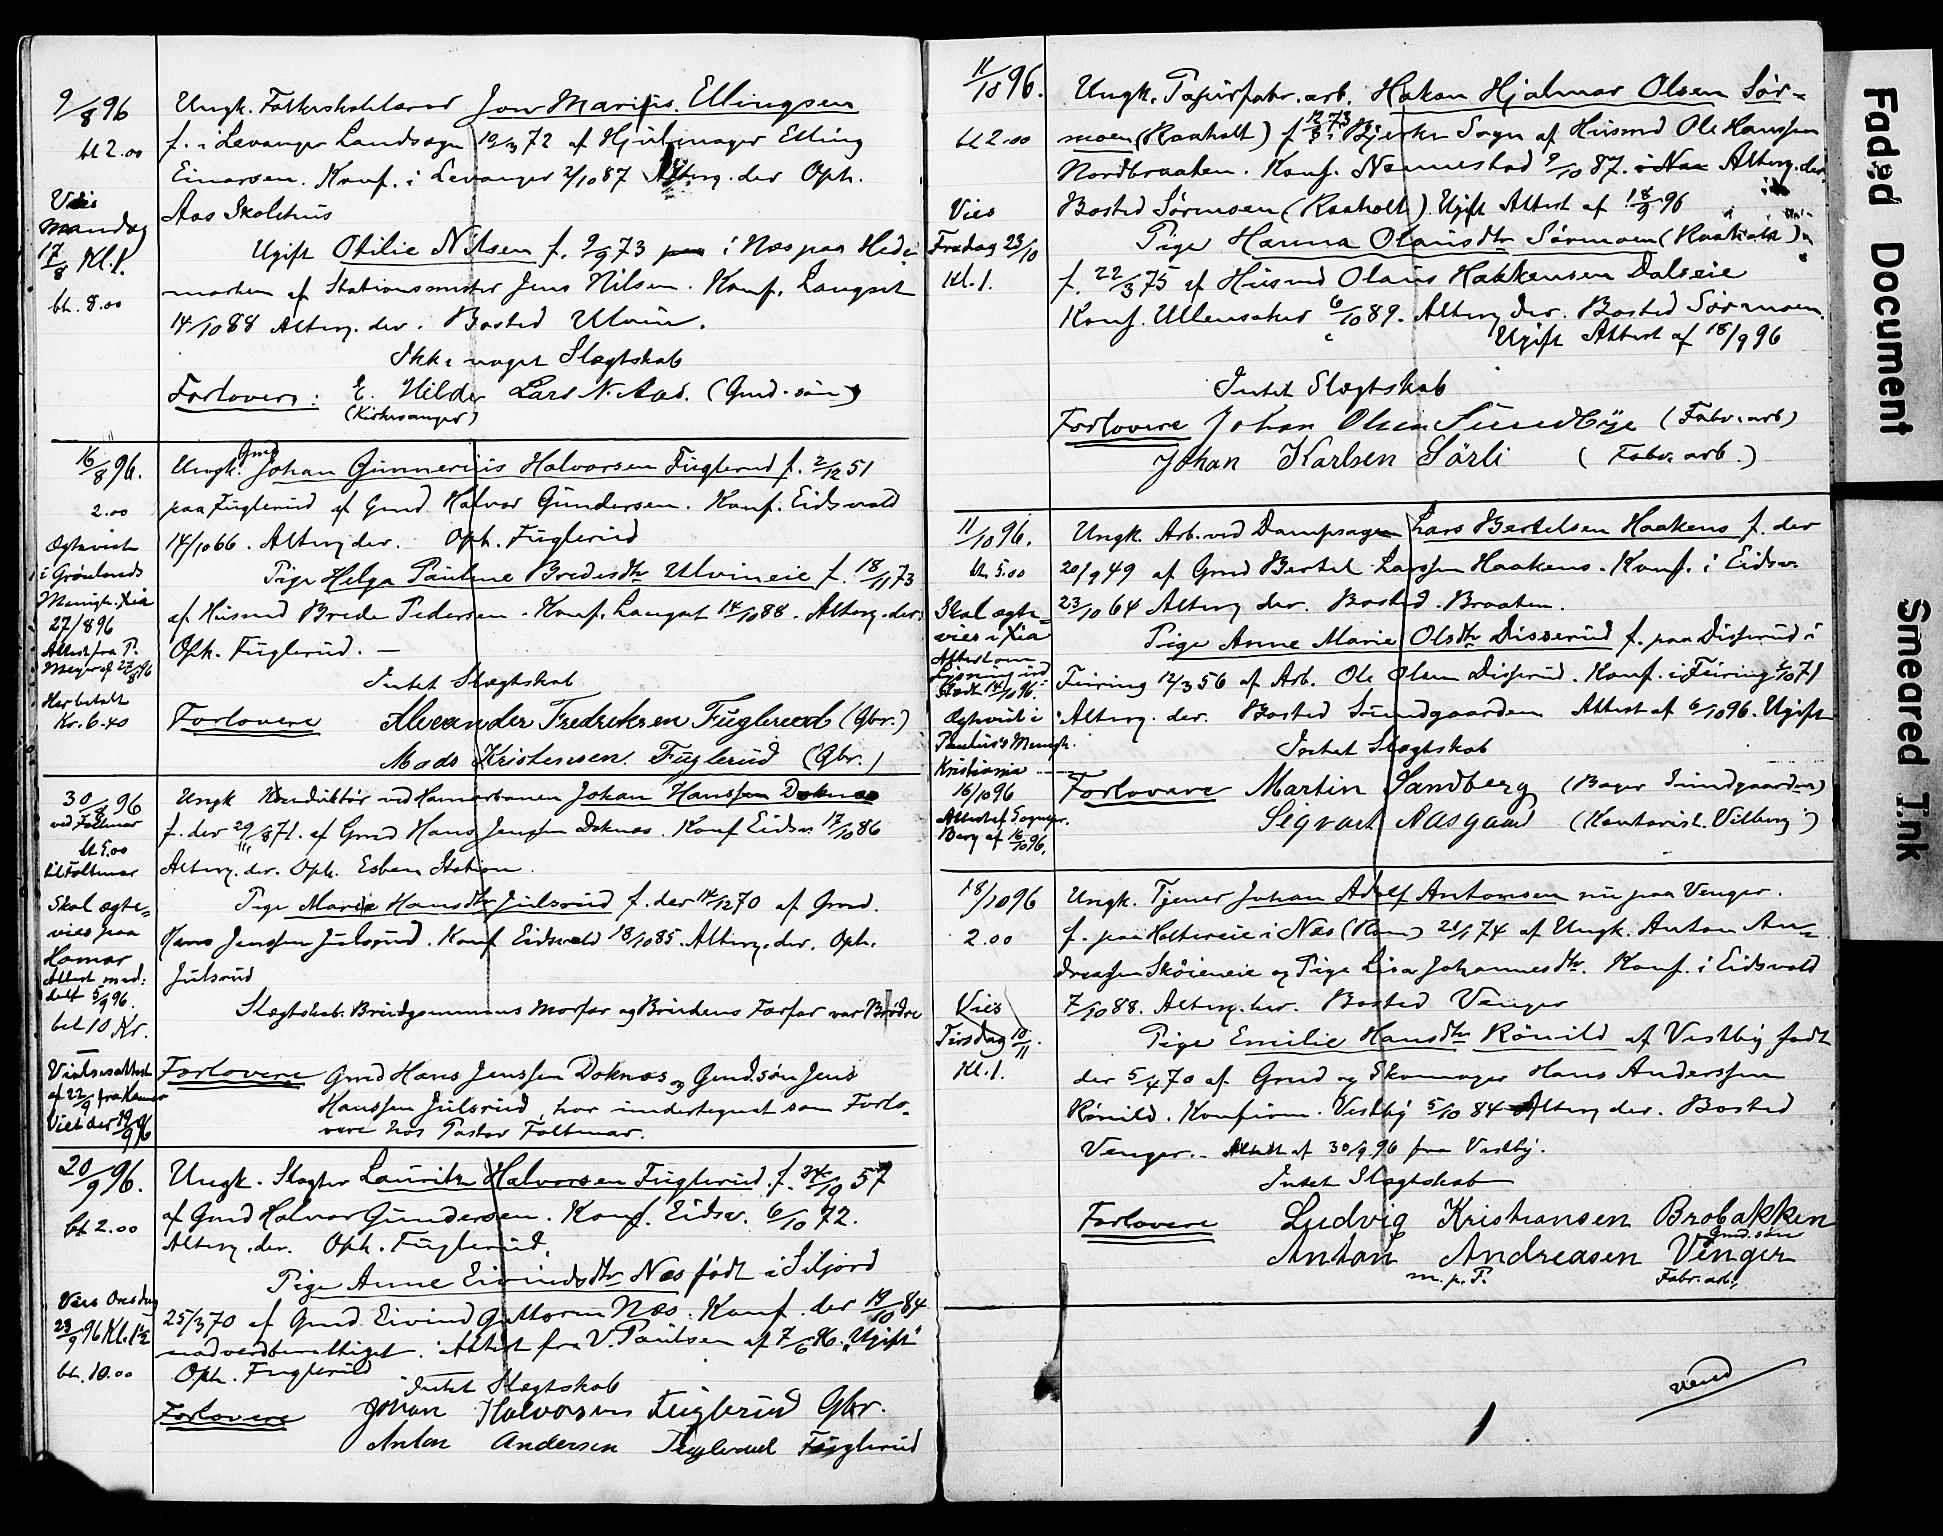 9/8 96
bt 2.00
Vies
Mandag
17/8 Kl. 1.
bt. 8.00
Ungk. Folkeskolelærer Jon Marius Ellingsen
f. i Levanger Landsogn 12/3 72 af Hjulmager Elling
Einarsen. Konf. i Levanger 2/10 87 Alterg. der Oph.
Aas Skolehus
Ugift Otilie Nilsen f. 9/9 73 i Næs paa Hede-
marken af Stationsmester Jens Nilsen. Konf. Langset
14/10 88 Alterg. der. Bosted Ulvin.
Ikke noget Slægtskab
Forlovere: E. Hilder Lars N. Aas. (Gmd. søn)
(Kirkesanger)
16/8 96.
2.00
Ægteviet
i Grønlands
Menigh. Xia
27/8 96
Attest fra P.
Meyer af 27/8 96
Her betalt
Kr. 6.40
Gmd
Ungk. Johan Gunnerius Halvorsen Fuglerud f. 2/12 51
paa Fuglerud af Gmd Halvor Gundersen. Konf. Eidsvold
14/10 66. Alterg. der. Oph. Fuglerud
Pige Helga Pauline Bredesdtr Ulvineie f. 18/11 73
af Husmd Brede Pedersen. Konf. Langset 14/10 88. Alterg. der.
Oph. Fuglerud. —
Intet Slægtskab
Forlovere Alexander Fredriksen Fuglerud (Gbr.)
Mads Kristensen Fuglerud (Gbr.)
30/8 96
ved Foltmar
bt 5.00
til Foltmar
Skal ægte-
vies paa
Hamar
Attest med-
delt 5/9 96.
bet 10 Kr.
Vielsesattest
af 22/9 fra Hamar
Viet der 19/9 96
Ungk Konduktør ved Hamarbanen Johan Hanssen Doknæs
f. der 29/8 71. af Gmd Hans Jenssen Doknæs. Konf Eidsv. 17/10 86
Alterg. der. Oph. Esben Station.
Pige Marie Hansdtr Julsrud f. der 14/12 70 af Gmd.
Hans Jenssen Julsrud. Konf Eidsvold 18/10 85. Alterg. der. Oph.
Julsrud
Slægtskab: Brudgommens Morfar og Brudens Farfar var Brødre
Forlovere Gmd Hans Jenssen Doknæs og Gmd. søn Jens
Hanssen Julsrud, har undertegnet som Forlo-
vere hos Pastor Foltmar.
20/9 96.
bt 2.00
Vies Onsdag
23/9 96 Kl. 1 1/2
bt. 10.00
Ungk. Slagter Lauritz Halvorsen Fuglerud. f. 24/10 57
af Gmd Halvor Gundersen. Konf. Eidsv. 6/10 72.
Alterg. der. Oph. Fuglerud.
Pige Anne Eivindsdtr Næs født i Siljord
25/3 70 af Gmd. Eivind Guttormsen Næs. Konf. der 19/10 84
nadverdberettiget. Attest fra V. Paulsen af 7/6 96. "Ugift"
Oph. Fuglerud
Intet Slægtskab
Forlovere Johan Halvorsen Fuglerud Gbr.
Anton Andersen Fuglerud
11/10 96.
bt 2.00
Vies
Fredag 23/10
Kl. 1.
Ungk. Papirfabr. arb. Hakon Hjalmar Olsen Sør-
moen (Raaholt) f 12/3 73 i Bjerke Sogn af Husmd Ole Hanssen
Nordbraaten. Konf. Nannestad 9/10 87. Alterg. der.
Bosted Sørmoen (Raaholt). Ugift Attest af 18/9 96
Pige Hanna Olausdtr Sørmoen (Raaholt)
f. 22/3 75 af Husmd Olaus Haakensen Dalseie
Konf. Ullensaker 6/10 89. Alterg. der. Bosted Sørmoen.
Ugift Attest af 18/9 96
Intet Slægtskab
Forlovere Johan Olsen Sundbye (Fabr. arb)
Johan Karlsen Sörli (Fabr. arb.)
11/10 96.
bt. 5.00
Skal ægte-
vies i Xia
Attest om
Lysning ud-
stedt 14/10 96.
Ægteviet i
Paulus's Menigh.
Kristiania
16/10 96
Attest af Sognepr.
Berg af 16/10 96.
Ungk. Arb. ved Dampsagen Lars Bertelsen Haakens f. der
20/9 49 af Gmd Bertel Larssen Haakens. Konf. i Eidsv.
23/10 64 Alterg. der. Bosted. Braaten.
Pige Anne Marie Olsdtr Disserud f. paa Disserud i
Feiring 12/3 56 af Arb. Ole Olsen Disserud. Konf. i Feiring 1/10 71
Alterg. der. Bosted Sundgaarden Attest af 6/10 96. Ugift
Intet Slægtskab
Forlovere Martin Sandberg (Bager Sundgaarden)
Sigvart Aasgaard (Kontorist. Vilberg)
18/10 96
2.00
Vies
Tirsdag 10/11.
Kl. 1.
Ungk. Tjener Johan Adolf Antonsen nu paa Venger.
f. paa Haltereie i Næs (Rom) 21/1 74 af Ungk. Anton An-
dreassen Skøieneie og Pige Lisa Johannesdtr. Konf. i Eidsvold
7/10 88. Alterg. her. Bosted Venger
Pige Emilie Hansdtr Rönild af Vestby født
der 5/4 70 af Gmd og Skomager Hans Anderssen
Rönild. Konfirm. Vestby 5/10 84 Alterg. der. Bosted
Venger. Attest af 30/9 96 fra Vestby.
Intet Slægtskab
Forlovere Ludvig Kristiansen Brobakken
Gmd. søn
Anton Andreasen Venger
m. p. P. Fabr. arb.
vend
Faded Document
Smeared Ink